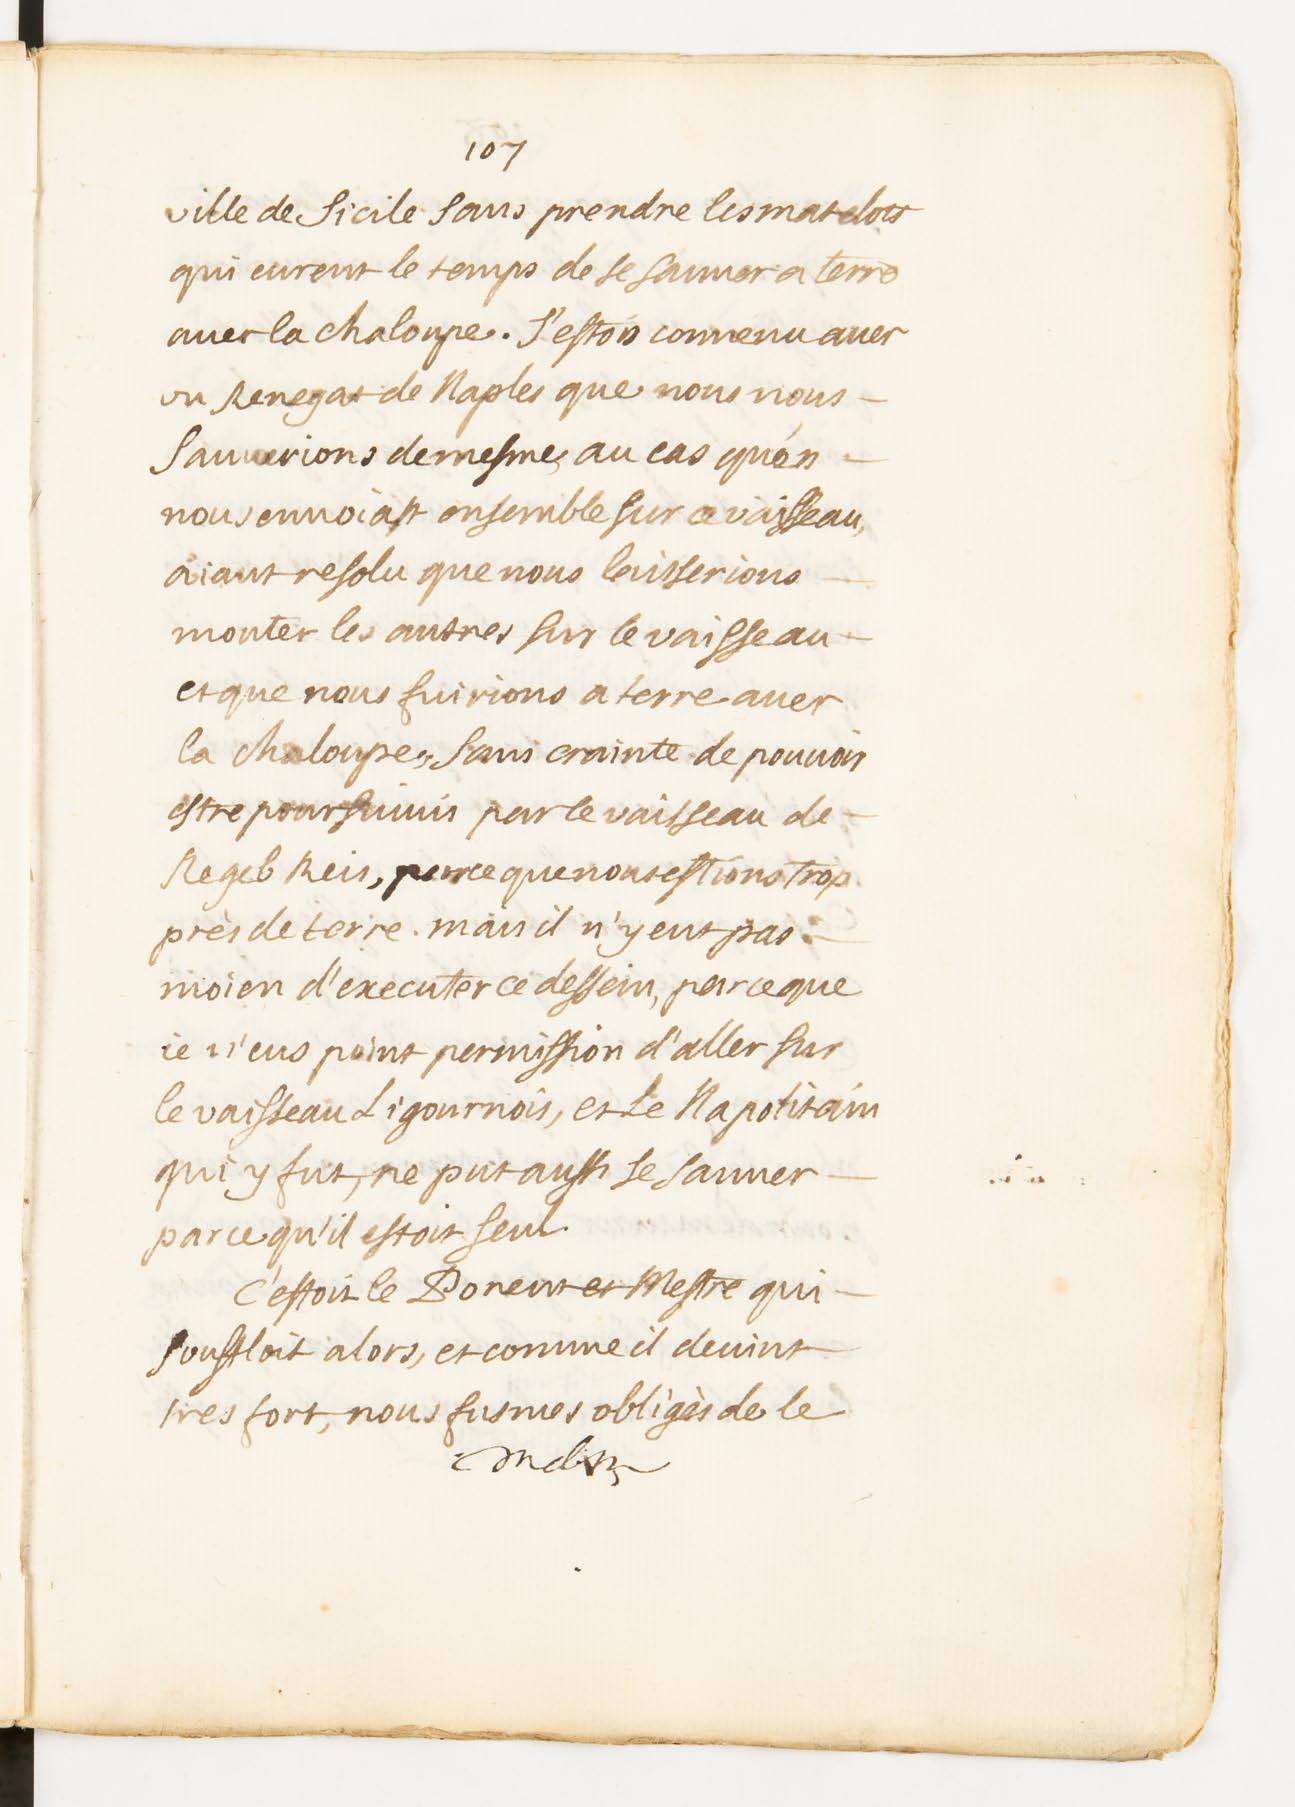 107
ville de Sicile sans prendre les matelots
qui eurent le temps de se sauuer a terre
auec la chaloupe. J'estois conuenu auec
vn Renegat de Naples que nous nous –
sauuerions de mesme, au cas qu'on –
nous enuoiast ensemble sur ce vaisseau,
aiant resolu que nous laisserions –
monter les autres sur le vaisseau –
et que nous fuirions a terre auec
la chaloupe, sans crainte de pouuoir
estre poursuiuis par le vaisseau de –
Regeb Reis, parce que nous estions trop
près de terre. mais il n'y eut pas –
moien d'executer ce dessein, parce que
ie n'eus point permission d'aller sur
le vaisseau Ligournois, et Le Napolitain
qui y fut, ne put aussi se sauuer –
parce qu'il estoit seul.
C'estoit le Ponent et Mestre qui –
souffloit alors, et comme il deuint
tres fort, nous fusmes obligès de le